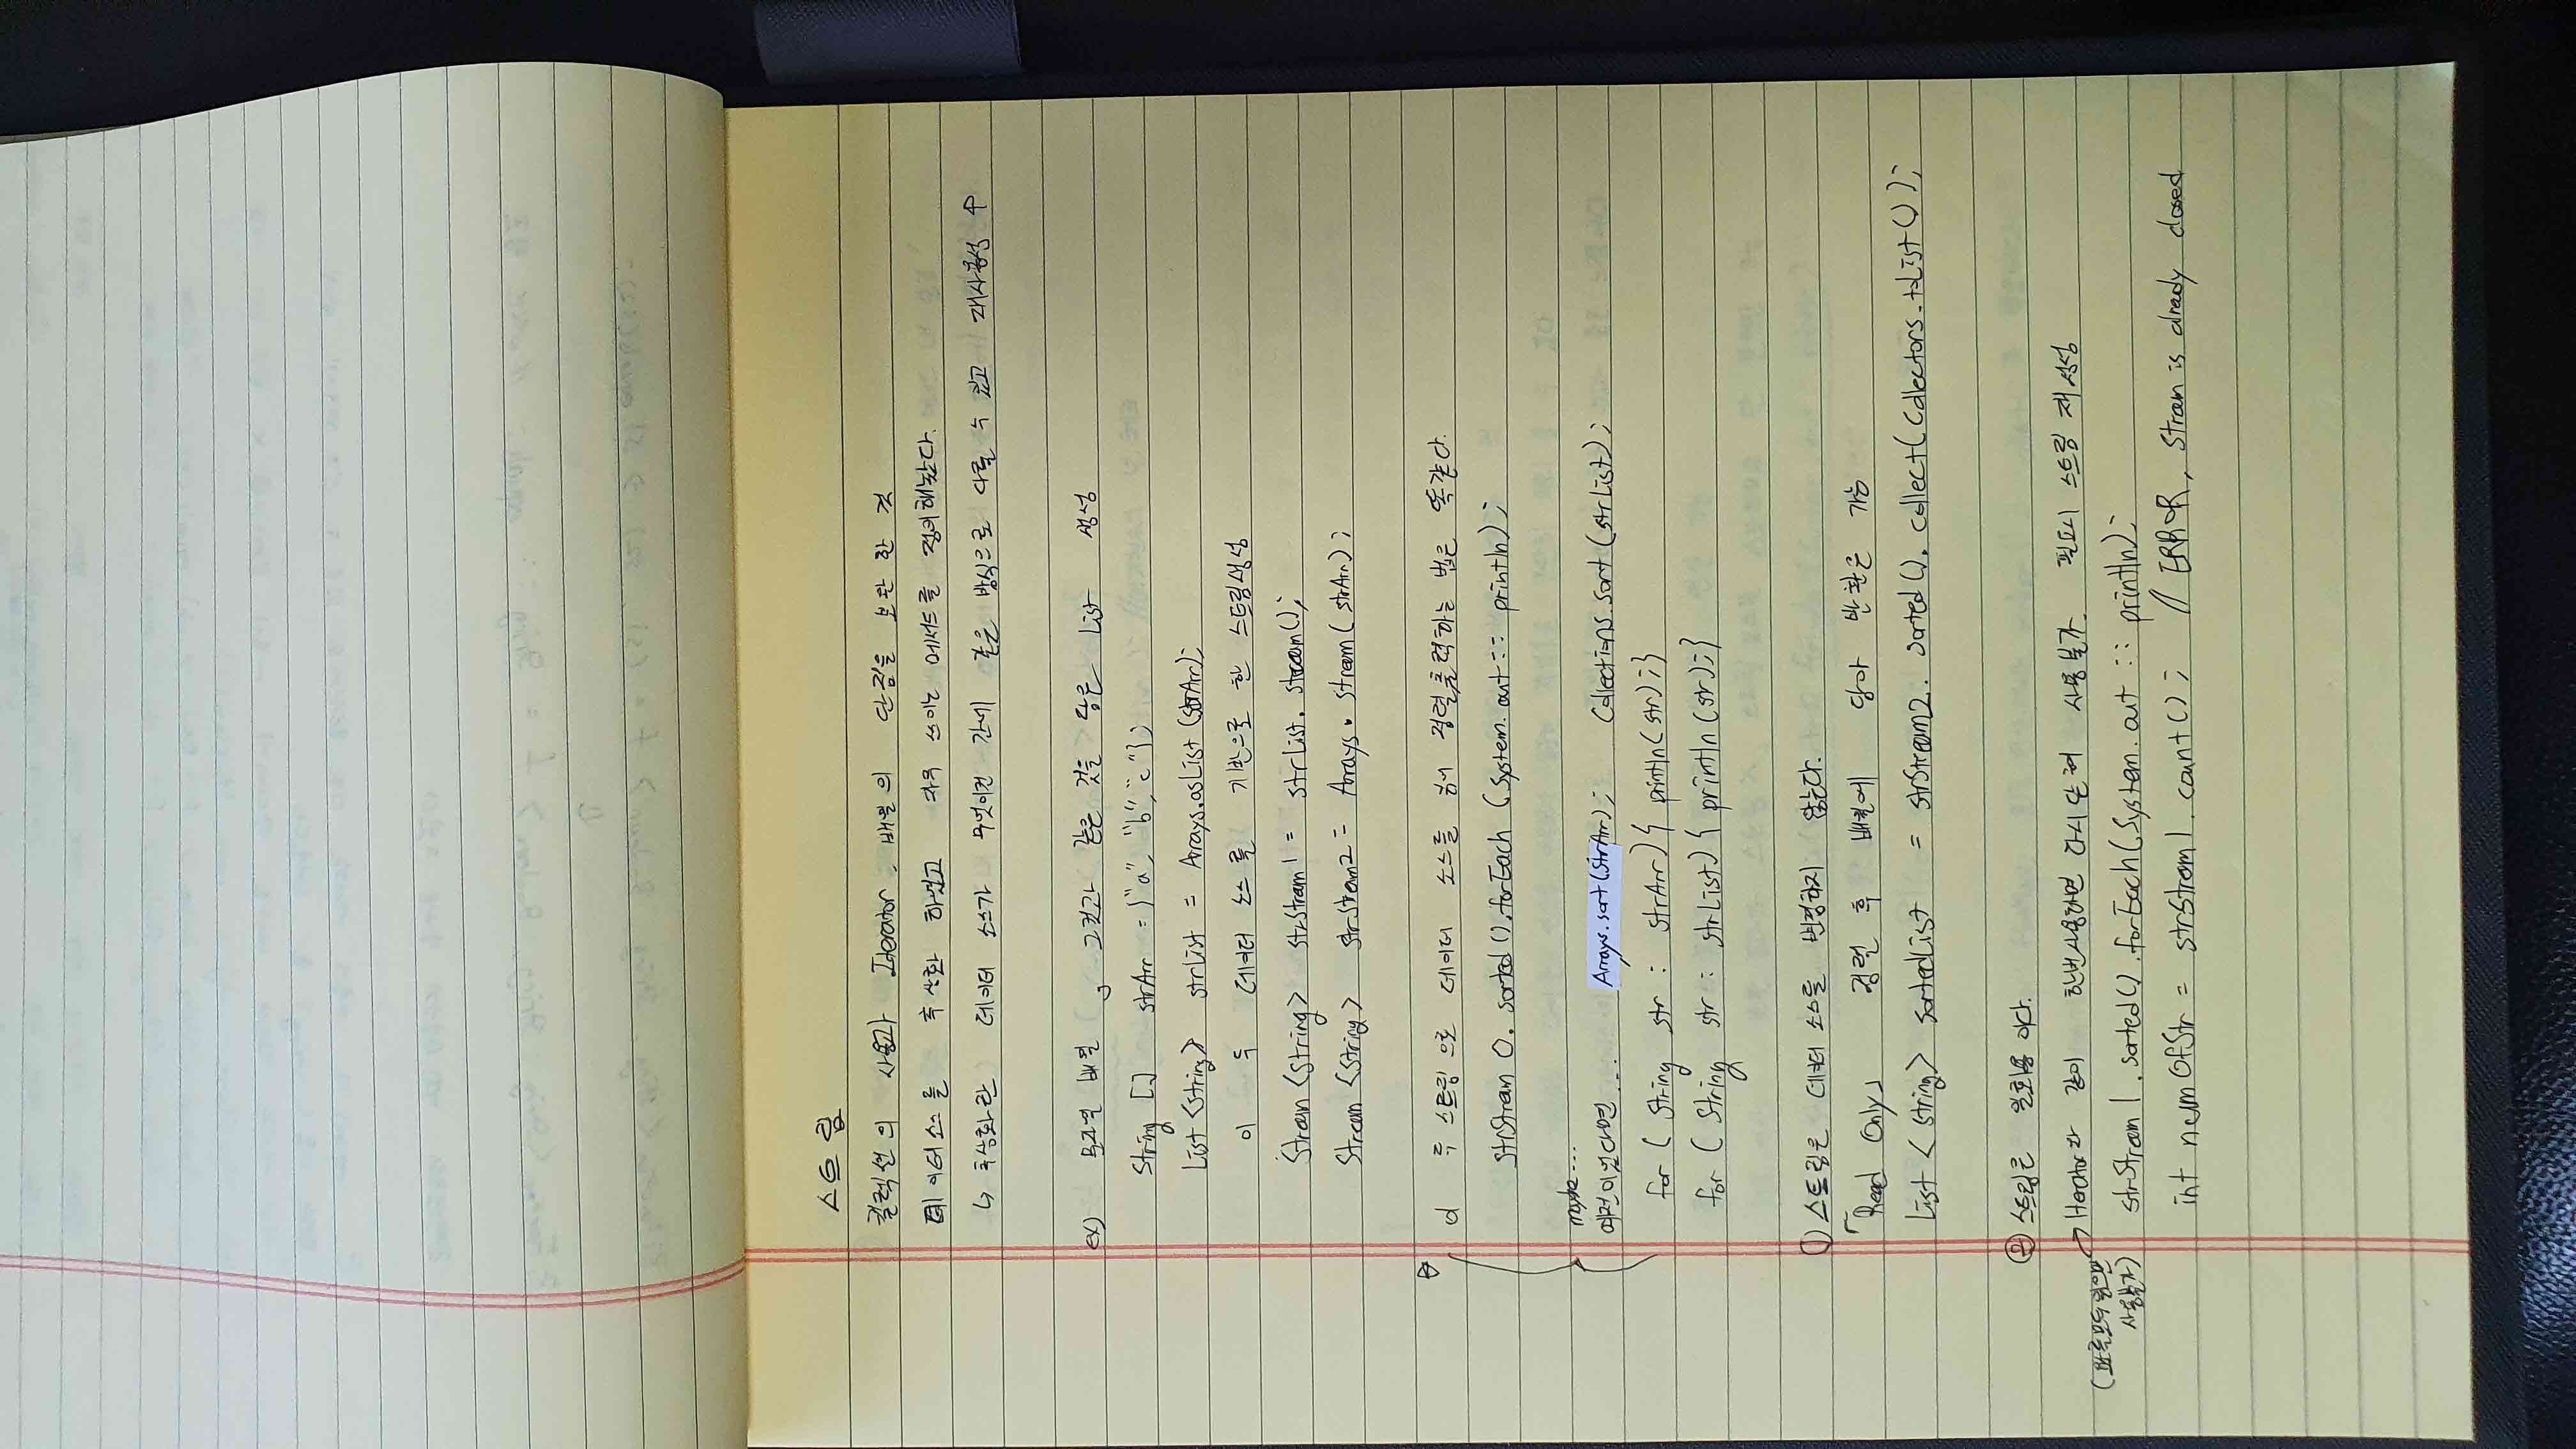 스트림
컬렉션의 사용과 Iterator, 배열의 단점을 보완 한 것
데이터소스를 추상화 하였고 자주 쓰이는 메서드를 정의해놨다.
↳ 추상화란 데이터 소스가 무엇이건 간에 같은 방식으로 다룰 수 있고 재사용성 ↑
ex) 문자열 배열, 그것과 같은 것을 담은 List 생성
String [] strArr = {"a", "b", "c"};
List <String> strList = Arrays.asList (strArr);
이 두 데이터 소스를 기반으로 한 스트림생성
Stream <String> strStream1 = strList. stream();
Stream <String> strStream2 = Arrays. stream( strArr) ;
두 스트림 으로 데이터 소스를 정렬,출력하는 법은 똑같다.
strStream 0. sorted (). forEach (System. out :: println) ;
maybe...
예전이었다면 ... Arrays.sort(strArr); Collections.sort (strList) ;
for ( String str : strArr) { println(str) ; }
for ( String str : strList) { println (str) ; }
① 스트림은 데이터 소스를 변경하지 않는다.
「Read Only」 정렬 후 배열에 담아 반환은 가능
List < String> sortedList = strStream2. sorted (). collect( Collectors. toList () );
② 스트림은 일회용 이다.
→ Iterator와 같이 한번사용하면 다시 닫혀 사용불가. 필요시 스트림 재생성
(요소를모두 읽으면
사용불가)
strStream 1. sorted() .forEach (System. out :: println);
int numOfStr = strStream1. count() ; // ERROR, Stream is already closed